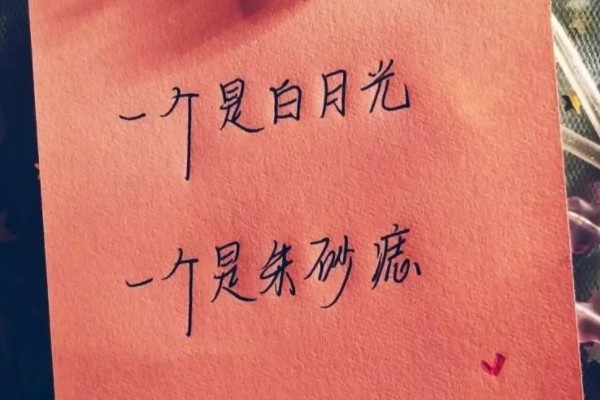 一个是白月光
一个是朱砂痣